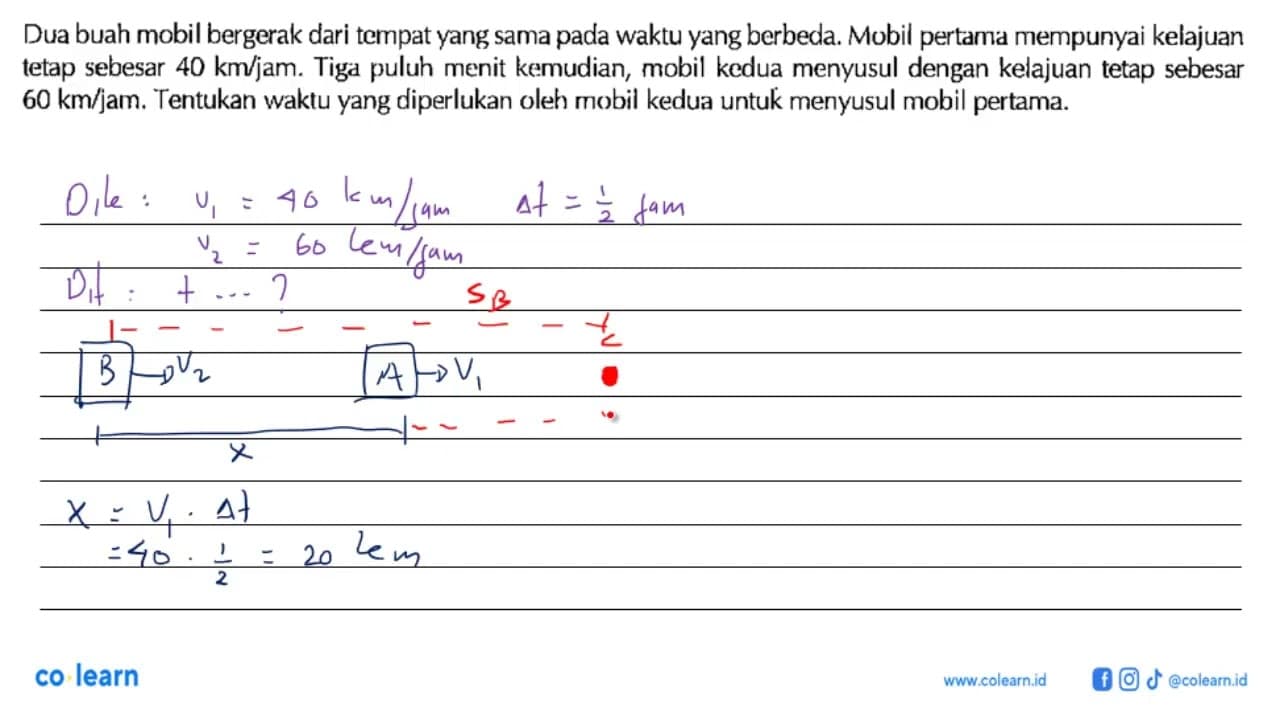 Dua buah mobil bergerak dari tempat yang sama pada waktu yang berbeda. Mobil pertama mempunyai kelajuan
tetap sebesar 40 km/jam. Tiga puluh menit kemudian, mobil kedua menyusul dengan kelajuan tetap sebesar
60 km/jam. Tentukan waktu yang diperlukan oleh mobil kedua untuk menyusul mobil pertama.
Dik : V₁ = 40 km/jam Δt = 1/2 jam
V₂ = 60 km/jam
Dit : t ... ?
SB
C
B V₂ A V₁
x
x = V₁ . Δt
= 40 . 1/2 = 20 km
co learn
www.colearn.id @colearn.id